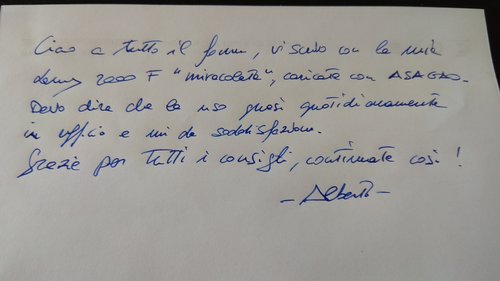 Ciao a tutto il forum, vi scrivo con la mia
Lamy 2000 F "miracolata", caricate con ASAGAO.
Devo dire che la uso quasi quotidianamente
in ufficio e mi da soddisfazione.
Grazie per tutti i consigli, continuate così!
- Alberto -